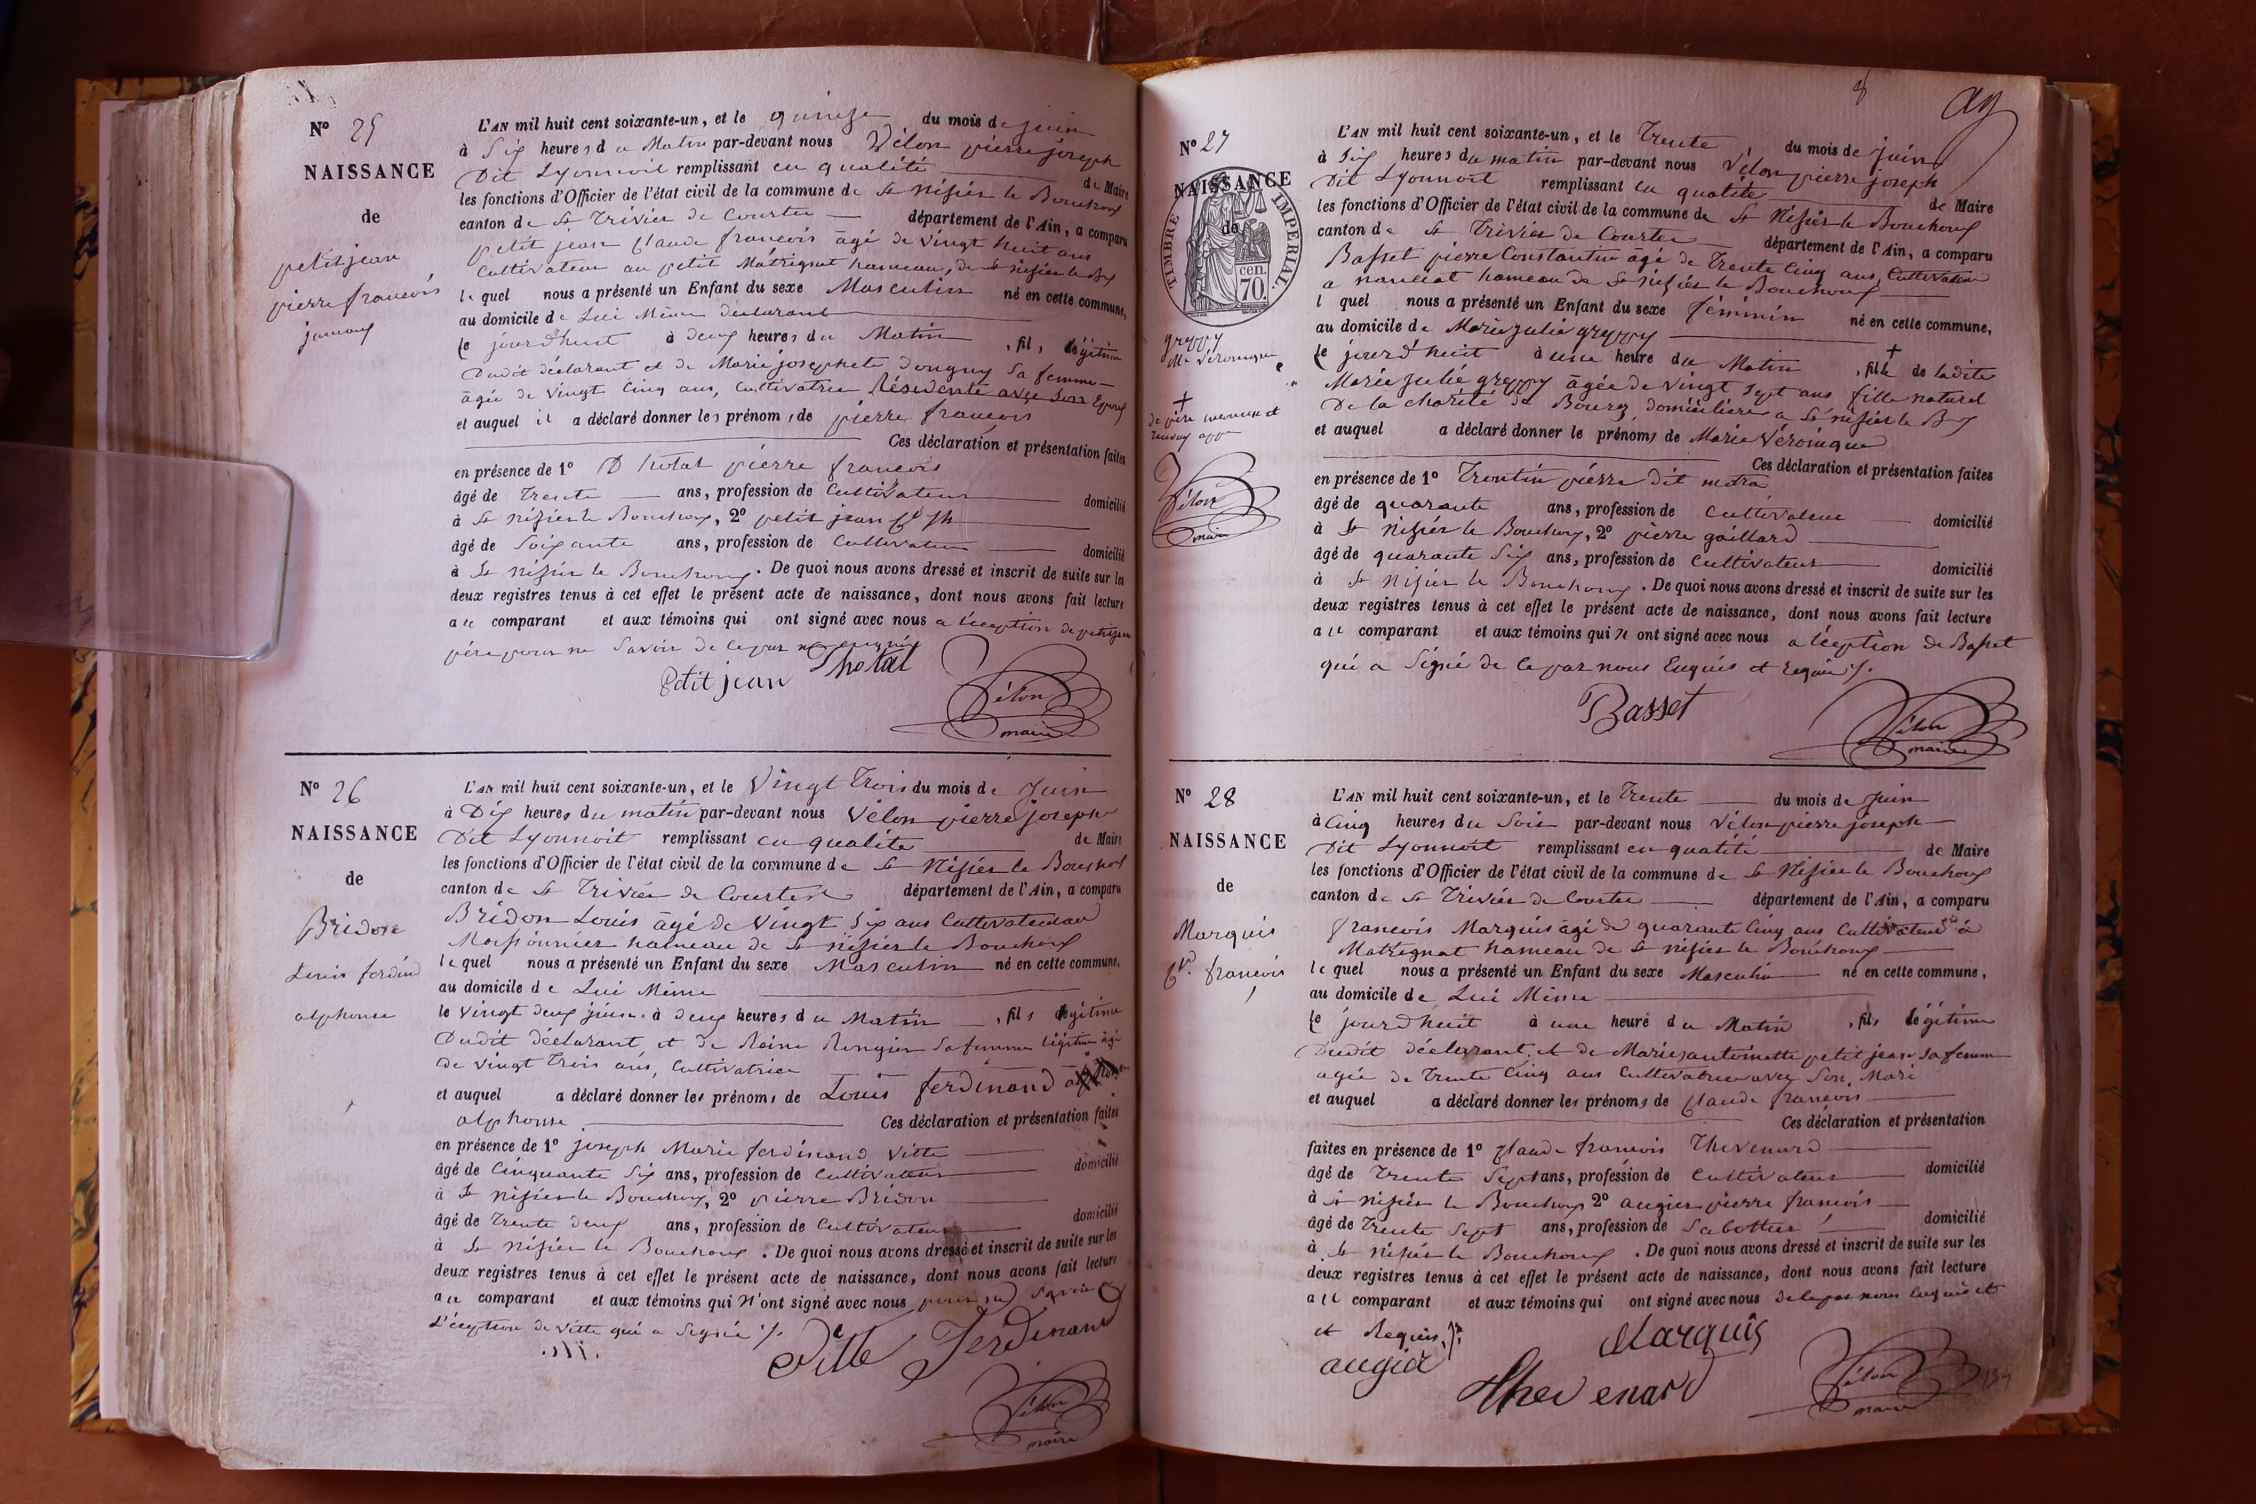 N° 25
NAISSANCE
de
petitjean
pierre francois
L'AN mil huit cent soixante-un, et le quinze du mois de juin
à Six heures du Matin par-devant nous Vélon pierre joseph
Dit Lyonnoit remplissant en qualité de Maire
les fonctions d'Officier de l'état civil de la commune de St Nisier le Bouchoux
canton de St Trivier de Courtes département de l'Ain, a comparu
petit jean Claude francois âgé de vingt huit ans
Cultivateur au petit Matrignat hameau, de St nisier le Bx
lequel nous a présenté un Enfant du sexe Masculin né en cette commune,
au domicile de Lui Même déclarant
le jourd'huit à deux heures du Matin , fils légitime
Dudit déclarant et de Marie josephete Donguy Sa femme
âgée de vingt Cinq ans, Cultivatrice Résidente avec Son Epoux
et auquel il a déclaré donner les prénoms de pierre francois
Ces déclaration et présentation faites
en présence de 1° Thotat pierre francois
âgé de Trente ans, profession de Cultivateur domicilié
à St Nisier le Bouchoux, 2° petit jean Cd jh
âgé de Soixante ans, profession de Cultivateur domicilié
à St Nisier le Bouchoux. De quoi nous avons dressé et inscrit de suite sur les
deux registres tenus à cet effet le présent acte de naissance, dont nous avons fait lecture
au comparant et aux témoins qui ont signé avec nous a l'éception de petitjean
père pour ne Savoir de ce par nous enquis
Petit jean Thotat
Vélon
maire
N° 26
NAISSANCE
de
Bridon
Louis ferdind
alphonse
L'AN mil huit cent soixante-un, et le Vingt Trois du mois de Juin
à Dix heures du matin par-devant nous Vélon pierre joseph
Dit Lyonnoit remplissant en qualité de Maire
les fonctions d'Officier de l'état civil de la commune de St Nisier le Bouchoux
canton de St Trivier de Courtes département de l'Ain, a comparu
Bridon Louis âgé de Vingt Six ans Cultivateur au
Moissonnier hameau de St nisier le Bouchoux
lequel nous a présenté un Enfant du sexe Masculin né en cette commune,
au domicile de Lui Même
le vingt deux juin à deux heures du Matin , fils légitime
Dudit déclarant et de Reine Rongier Sa femme légitime âgée
de vingt Trois ans, Cultivatrice
et auquel a déclaré donner les prénoms de Louis ferdinand
alphonse Ces déclaration et présentation faites
en présence de 1° joseph Marie ferdinand Vitte
âgé de Cinquante Six ans, profession de Cultivateur domicilié
à St Nisier le Bouchoux, 2° pierre Bridon
âgé de Trente deux ans, profession de Cultivateur domicilié
à St Nisier le Bouchoux. De quoi nous avons dressé et inscrit de suite sur les
deux registres tenus à cet effet le présent acte de naissance, dont nous avons fait lecture
au comparant et aux témoins qui N'ont signé avec nous pour ne Savoir a
L'éception de Vitte qui a Signé ./.
Vitte Ferdinand
Vélon
maire
N° 27
NAISSANCE
de
TIMBRE IMPÉRIAL
70. cen.
greppy
Mie Véronique
de père inconnu et
Vélon
maire
L'AN mil huit cent soixante-un, et le Trente du mois de juin
à Six heures du matin par-devant nous Vélon pierre joseph
Dit Lyonnoit remplissant en qualité de Maire
les fonctions d'Officier de l'état civil de la commune de St Nisier le Bouchoux
canton de St Trivier de Courtes département de l'Ain, a comparu
Basset pierre Constantin âgé de Trente Cinq ans, Cultivateur
a hameau de St Nisier le Bouchoux
l quel nous a présenté un Enfant du sexe féminin né en cette commune,
au domicile de Marie julie greppy
le jourd'huit à une heure du Matin , fille de ladite
Marie julie greppy âgée de vingt Sept ans fille naturel
De la charité de Bourg domiciliée a St nisier le Bx
et auquel a déclaré donner le prénoms de Marie Véronique
Ces déclaration et présentation faites
en présence de 1° Trontin pierre dit metra
âgé de quarante ans, profession de Cultivateur domicilié
à St Nisier le Bouchoux, 2° pierre gaillard
âgé de quarante Six ans, profession de Cultivateur domicilié
à St Nisier le Bouchoux. De quoi nous avons dressé et inscrit de suite sur les
deux registres tenus à cet effet le présent acte de naissance, dont nous avons fait lecture
au comparant et aux témoins qui N ont signé avec nous a l'éception de Basset
qui a Signé de ce par nous Enquis et Requis ./.
Basset
Vélon
maire
N° 28
NAISSANCE
de
Marquis
Cde francois
L'AN mil huit cent soixante-un, et le Trente du mois de Juin
à Cinq heures du Soir par-devant nous Vélon pierre joseph
Dit Lyonnoit remplissant en qualité de Maire
les fonctions d'Officier de l'état civil de la commune de St Nisier le Bouchoux
canton de St Trivier de Courtes département de l'Ain, a comparu
francois Marquis âgé de quarante Cinq ans Cultivateur à
Matrignat hameau de St nisier le Bouchoux
lequel nous a présenté un Enfant du sexe Masculin né en cette commune,
au domicile de Lui Même
le jourd'huit à une heure du Matin , fils légitime
Dudit déclarant et de Marie antoinette petit jean Sa femme
agée de Trente Cinq ans Cultivatrice avec Son Mari
et auquel a déclaré donner les prénoms de Claude francois
Ces déclaration et présentation
faites en présence de 1° Claude francois Thevenard
âgé de Trente Sept ans, profession de Cultivateur domicilié
à St Nisier le Bouchoux 2° augier pierre francois
âgé de Trente Sept ans, profession de Sabottier domicilié
à St Nisier le Bouchoux. De quoi nous avons dressé et inscrit de suite sur les
deux registres tenus à cet effet le présent acte de naissance, dont nous avons fait lecture
au comparant et aux témoins qui ont signé avec nous de ce par nous Enquis et
et Requis ./. Marquis
augier
Thevenard
Vélon
maire